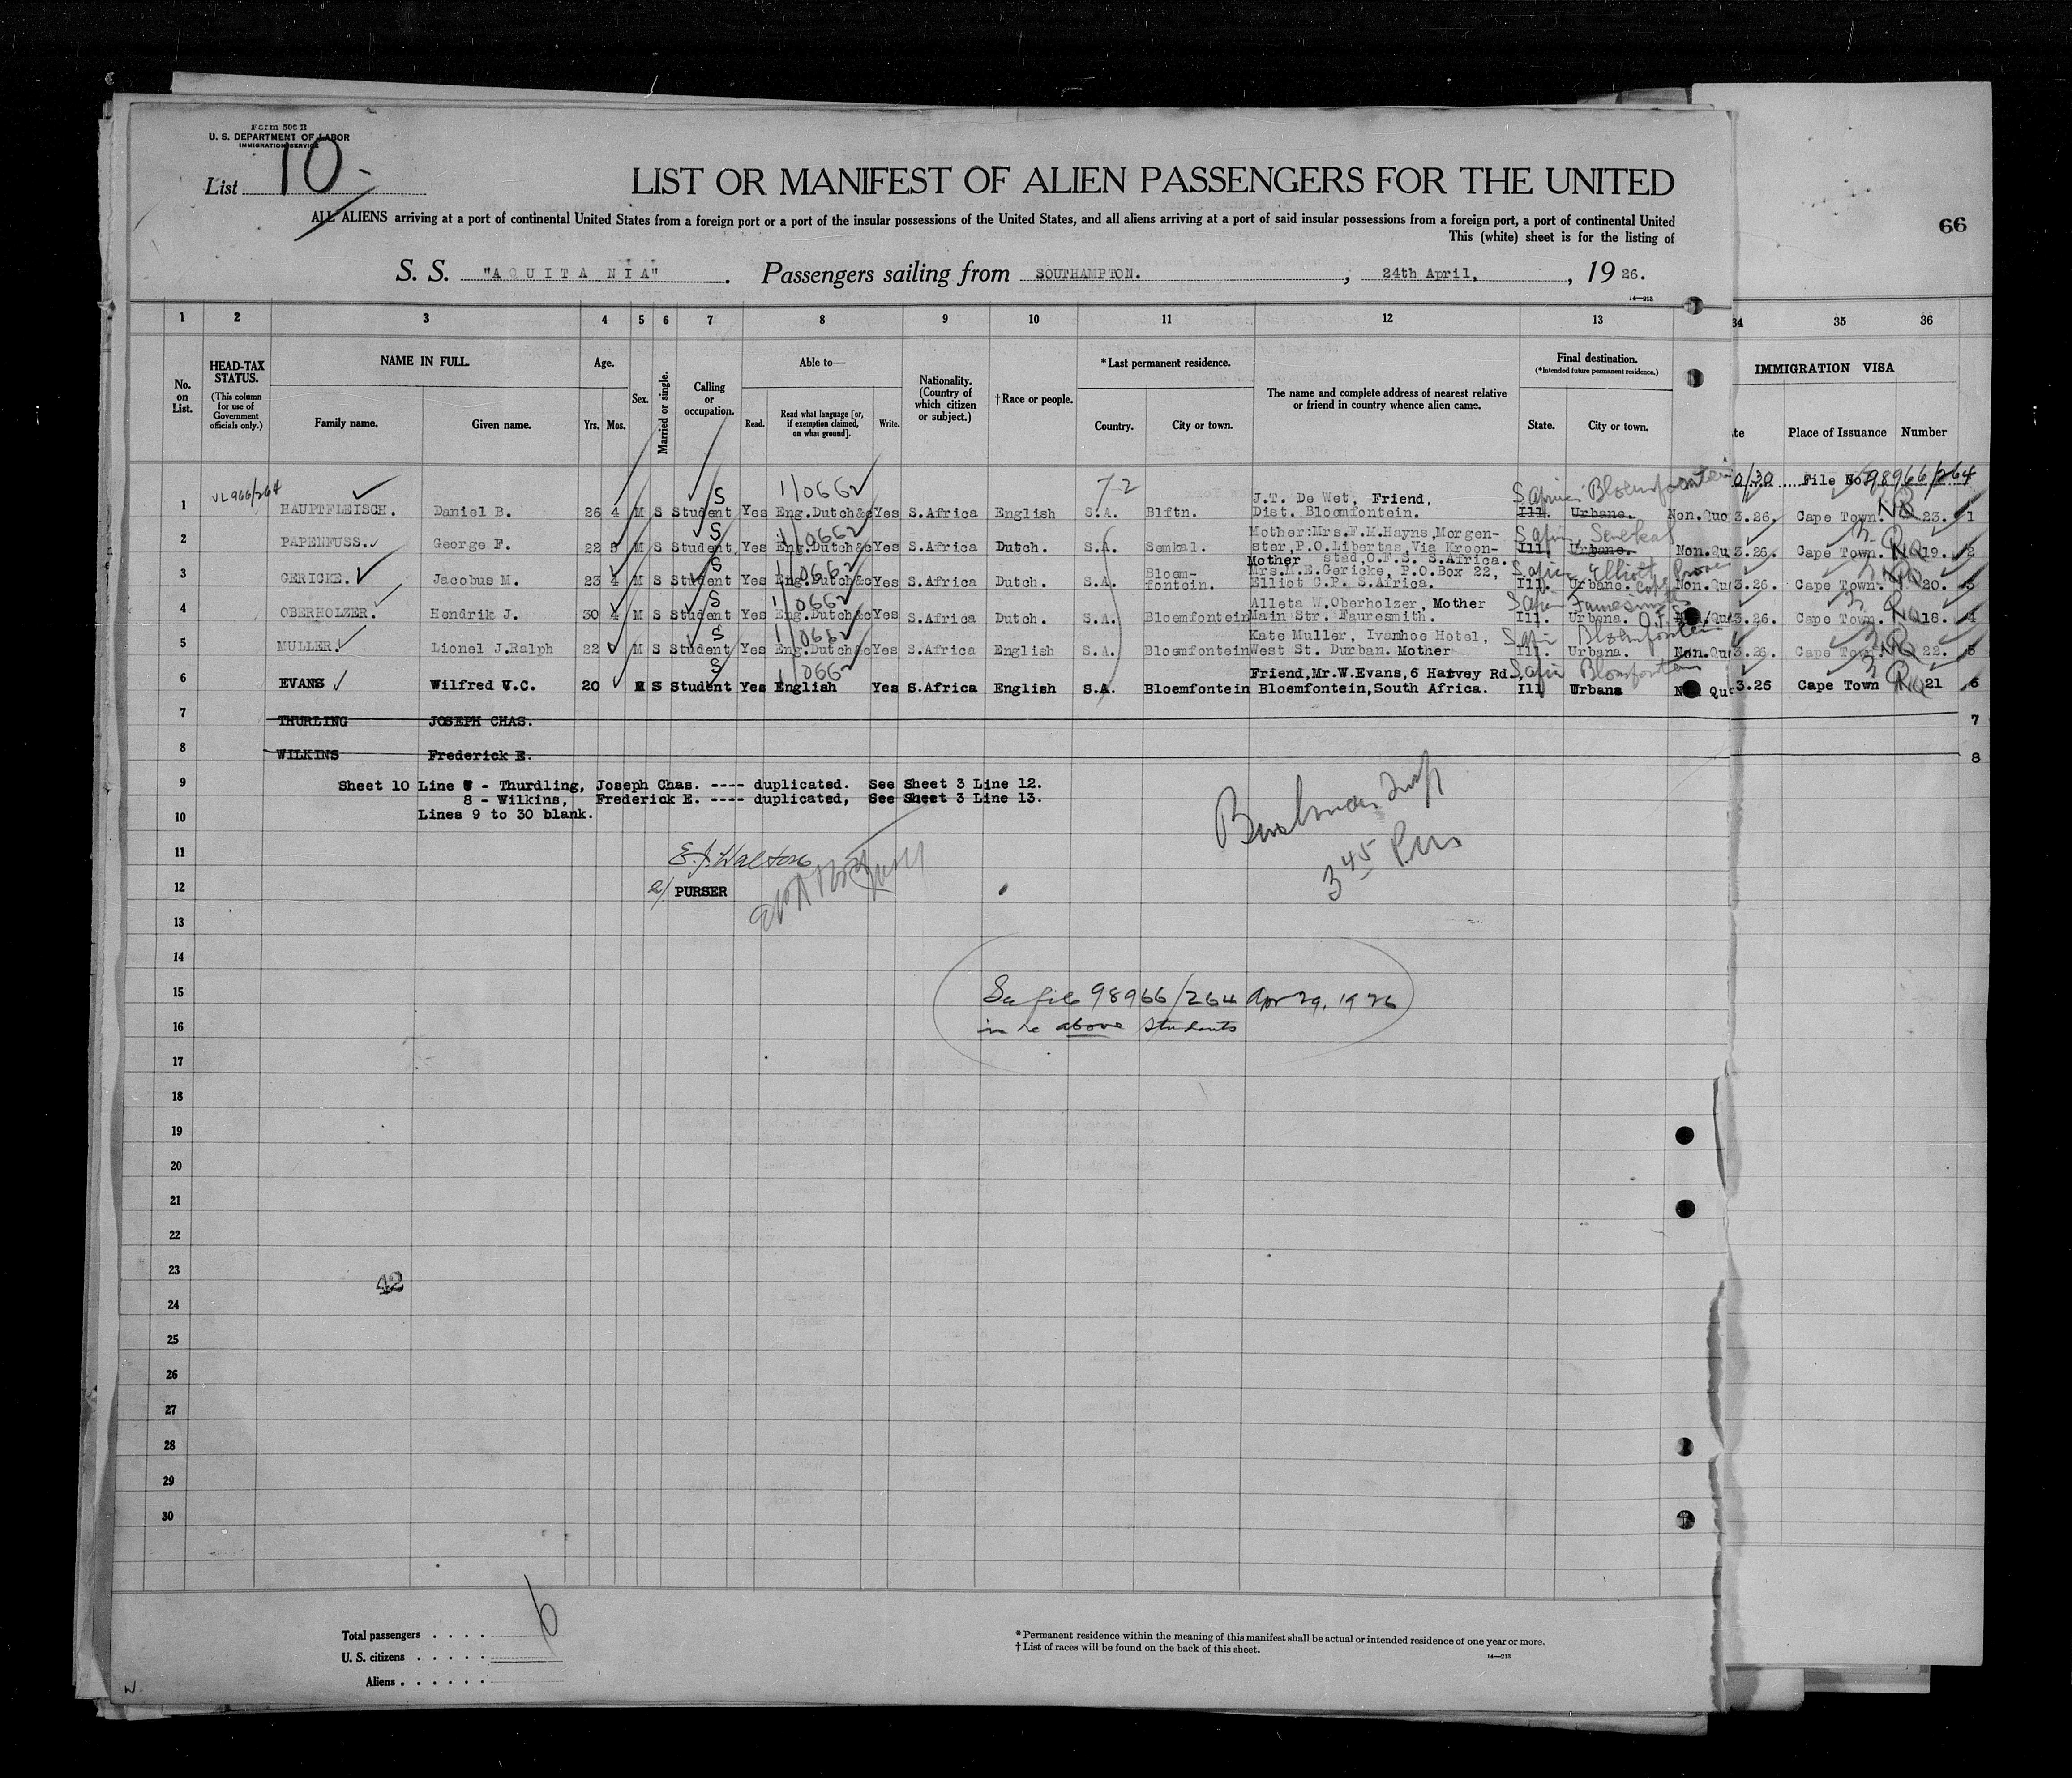 Form 500 B
U. S. DEPARTMENT OF LABOR
IMMIGRATION SERVICE
List 10
LIST OR MANIFEST OF ALIEN PASSENGERS FOR THE UNITED
66
ALL ALIENS arriving at a port of continental United States from a foreign port or a port of the insular possessions of the United States, and all aliens arriving at a port of said insular possessions from a foreign port, a port of continental United
This (white) sheet is for the listing of
S. S. "AQUITANIA". Passengers sailing from SOUTHAMPTON., 24th April, , 19 26.
14—213
1 2 3 4 5 6 7 8 9 10 11 12 13 34 35 36
No. on List.
HEAD-TAX STATUS.
(This column for use of Government officials only.)
NAME IN FULL.
Family name. Given name.
Age.
Yrs. Mos.
Sex.
Married or single.
Calling or occupation.
Able to—
Read. Read what language [or, if exemption claimed, on what ground]. Write.
Nationality. (Country of which citizen or subject.)
†Race or people.
*Last permanent residence.
Country. City or town.
The name and complete address of nearest relative or friend in country whence alien came.
Final destination.
(*Intended future permanent residence.)
State. City or town.
IMMIGRATION VISA
te Place of Issuance Number
72
0/30 File No. 98966/264
1 HAUPTFLEISCH. Daniel B. 26 4 M S Student S Yes Eng.Dutch&c Yes 1/0662 S.Africa English S.A. Blftn. J.T. De Wet, Friend, Dist. Bloemfontein. Ill. Urbane. S Africa Bloemfontein Non.Quo 3.26. Cape Town. NQ 23. 1
2 PAPENFUSS. George F. 22 5 M S Student. S Yes Eng.Dutch&c Yes 1/0662 S.Africa Dutch. S.A. Senkal. Mother:Mrs.F.M.Hayns,Morgen-ster,P.O.Libertas,Via Kroon-sted,O.F.S. S.Africa. Ill. Urbane. Senekal Non.Qu 3.26. Cape Town. NQ 19. 2
3 GERICKE. Jacobus M. 23 4 M S Student S Yes Eng.Dutch&c Yes 1/0662 S.Africa Dutch. S.A. Bloem-fontein. Mother Mrs.M.E.Gericke, P.O.Box 22, Elliot C.P. S.Africa. Ill. Urbane. Elliott Cape Prov Non.Qu 3.26. Cape Town. NQ 20. 3
4 OBERHOLZER. Hendrik J. 30 4 M S Student S Yes Eng.Dutch&c Yes 1/0662 S.Africa Dutch. S.A. Bloemfontein Alleta W.Oberholzer, Mother Main Str. Fauresmith. Ill. Urbana. Quo 3.26. Cape Town. NQ 18. 4
5 MULLER. Lionel J.Ralph 22 M S Student S Yes Eng.Dutch&c Yes 1/0662 S.Africa English S.A. Bloemfontein Kate Muller, Ivanhoe Hotel, West St. Durban. Mother Ill. Urbana. Bloemfontein Non.Quo 3.26. Cape Town. NQ 22. 5
6 EVANS Wilfred V.C. 20 M S Student S Yes English Yes 1/0662 S.Africa English S.A. Bloemfontein Friend,Mr.W.Evans,6 Harvey Rd., Bloemfontein,South Africa. Ill Urbana Bloemfontein Quo 3.26 Cape Town NQ 21 6
7 THURLING JOSEPH CHAS. 7
8 WILKINS Frederick E. 8
9 Sheet 10 Line 7 - Thurdling, Joseph Chas. ---- duplicated. See Sheet 3 Line 12.
8 - Wilkins, Frederick E. ---- duplicated, See Sheet 3 Line 13.
10 Lines 9 to 30 blank.
Insp
3 45 P.M.
11
E.J. Walton
12 a/ PURSER
13
14
15 See file 98966/264 Apr 29, 1926
16 in re above students
17
18
19
20
21
22
23
42
24
25
26
27
28
29
30
Total passengers . . . . 6
U. S. citizens . . . . .
Aliens . . . . . .
* Permanent residence within the meaning of this manifest shall be actual or intended residence of one year or more.
† List of races will be found on the back of this sheet.
14—213